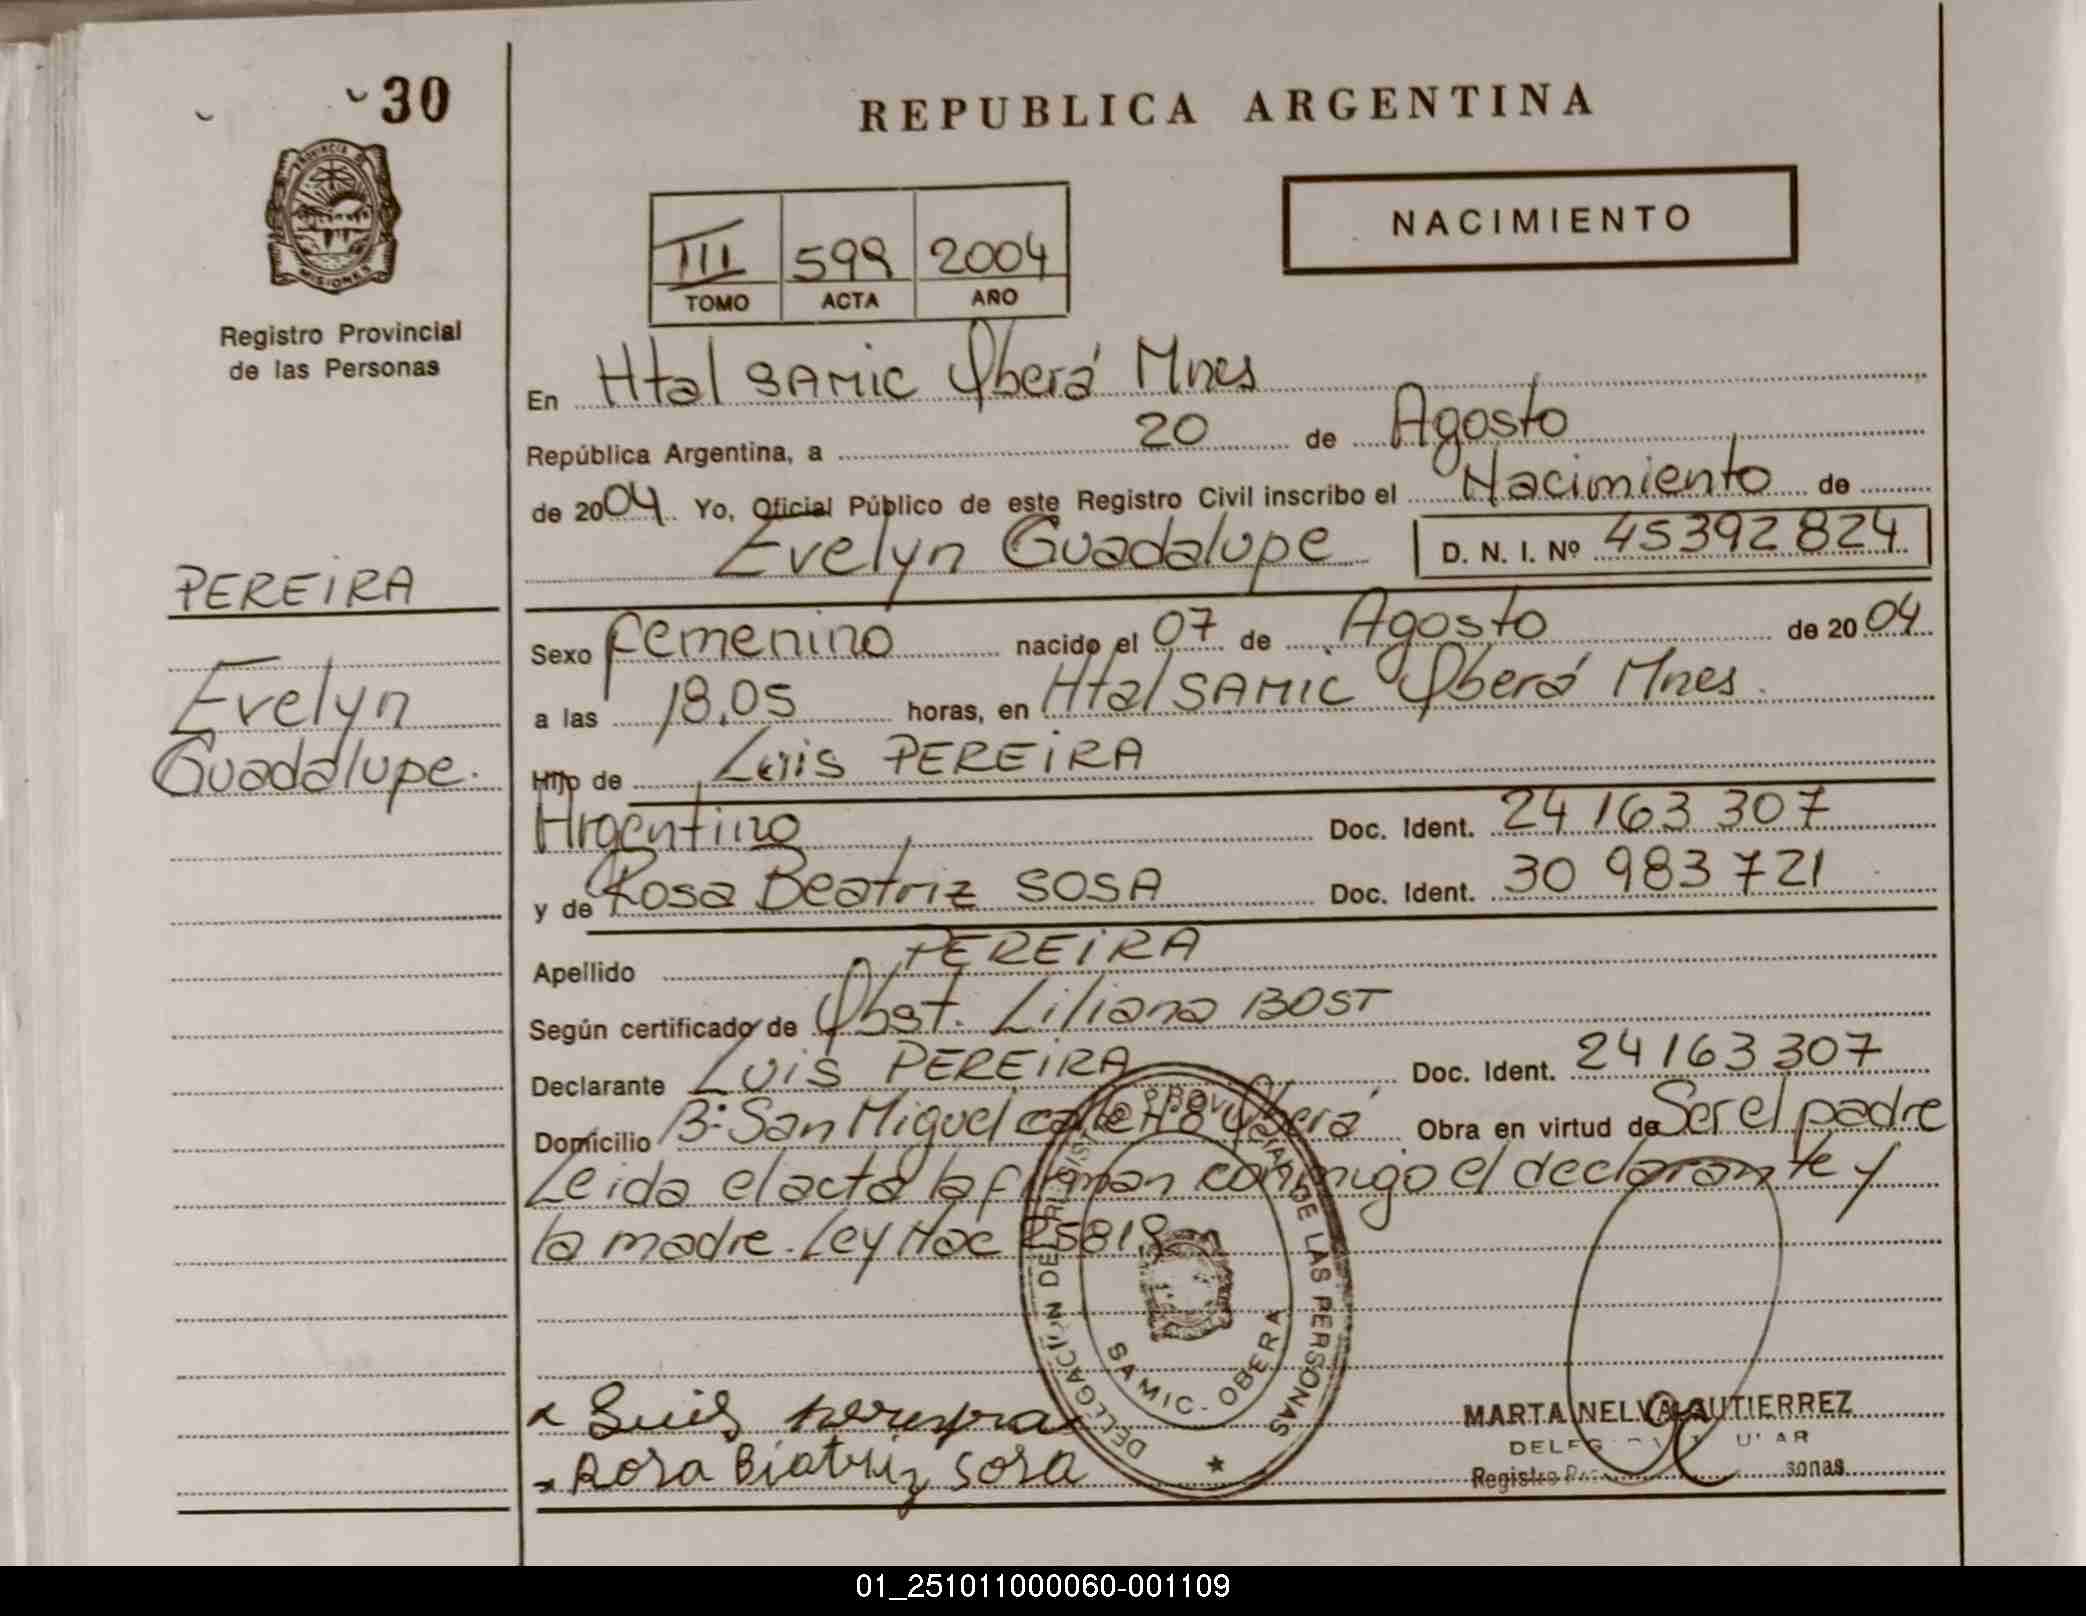 30
PROVINCIA DE
MISIONES
Registro Provincial
de las Personas
PEREIRA
Evelyn
Guadalupe.
REPUBLICA ARGENTINA
NACIMIENTO
III 599 2004
TOMO ACTA AÑO
En Htal SAMIC Oberá Mnes
República Argentina, a 20 de Agosto
de 2004 Yo, Oficial Público de este Registro Civil inscribo el Nacimiento de
Evelyn Guadalupe D. N. I. Nº 45392824
Sexo femenino nacido el 07 de Agosto de 2004
a las 18.05 horas, en Htal SAMIC Oberá Mnes.
Hijo de Luis PEREIRA
Argentino Doc. Ident. 24 163 307
y de Rosa Beatriz SOSA Doc. Ident. 30 983 721
Apellido PEREIRA
Según certificado de Obst. Liliana BOST
Declarante Luis PEREIRA Doc. Ident. 24163307
Domicilio Bº San Miguel calle Nº8 Oberá Obra en virtud de Ser el padre
Leida el acta la firman conmigo el declarante y
la madre. Ley Nac 25818
DELEGACION DE REGISTRO PROVINCIAL DE LAS PERSONAS
SAMIC - OBERA
x Luis
x Rosa Biatriz Sosa
MARTA NELVA GUTIERREZ
Registro
01_251011000060-001109